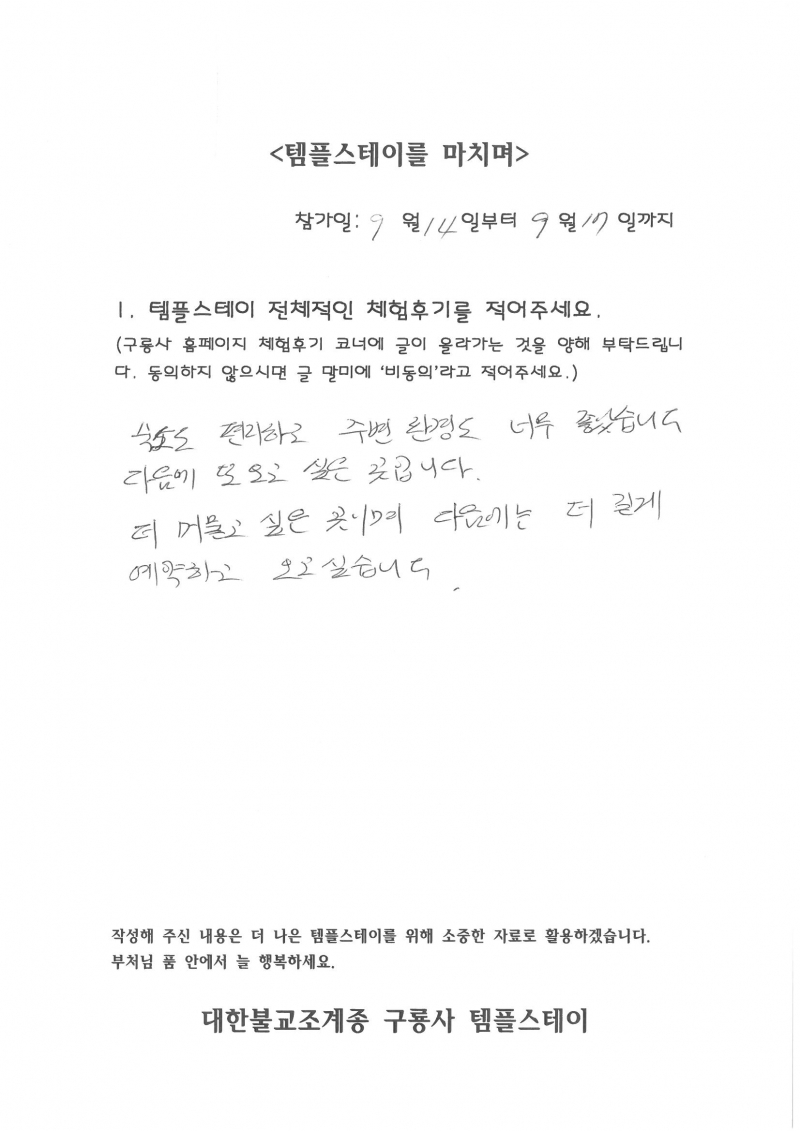 <템플스테이를 마치며>
참가일: 9 월 14 일부터 9 월 17 일까지
1. 템플스테이 전체적인 체험후기를 적어주세요.
(구룡사 홈페이지 체험후기 코너에 글이 올라가는 것을 양해 부탁드립니
다. 동의하지 않으시면 글 말미에 '비동의'라고 적어주세요.)
숙소도 편리하고 주변 환경도 너무 좋았습니다
다음에 또 오고 싶은 곳입니다.
더 머물고 싶은 곳이며 다음에는 더 길게
예약하고 오고 싶습니다.
작성해 주신 내용은 더 나은 템플스테이를 위해 소중한 자료로 활용하겠습니다.
부처님 품 안에서 늘 행복하세요.
대한불교조계종 구룡사 템플스테이